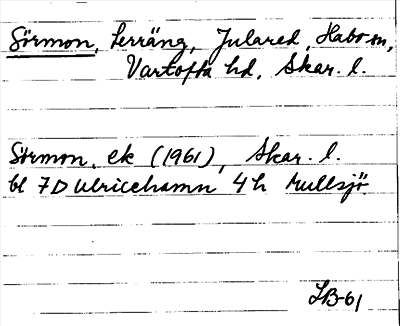 Sörmon, terräng, Julared, Habo sn,
Vartofta hd, Skar. l.
Sörmon, ek (1961), Skar. l.
bl 7D Ulricehamn 4h Mullsjö
LB-61